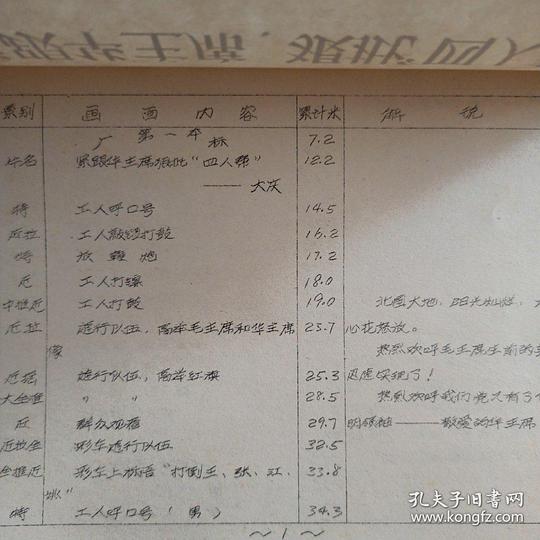 景别 画面内容 累计米 解说
第一本
厂标 7.2
片名 紧跟华主席狠批“四人帮” 12.2
——大庆
特 工人呼口号 14.5
近拉 工人敲锣打鼓 16.2
特 放鞭炮 17.2
近 工人打镲 18.0
中推近 工人打鼓 19.0 北国大地，阳光灿烂，
近拉 遊行队伍，高举毛主席和华主席 23.7 心花怒放。
像 热烈欢呼毛主席生前的
近摇 遊行队伍，高举红旗 25.3 遗愿实现了！
大全推 〃 〃 28.5 热烈欢呼我们党又有了
近 群众观看 29.7 明领袖——敬爱的华主席
近拉全 彩车遊行队伍 32.5
全推近 彩车上标语“打倒王、张、江、 33.8
姚”
特 工人呼口号（男） 34.3
～1～
孔夫子旧书网
www.kongfz.com